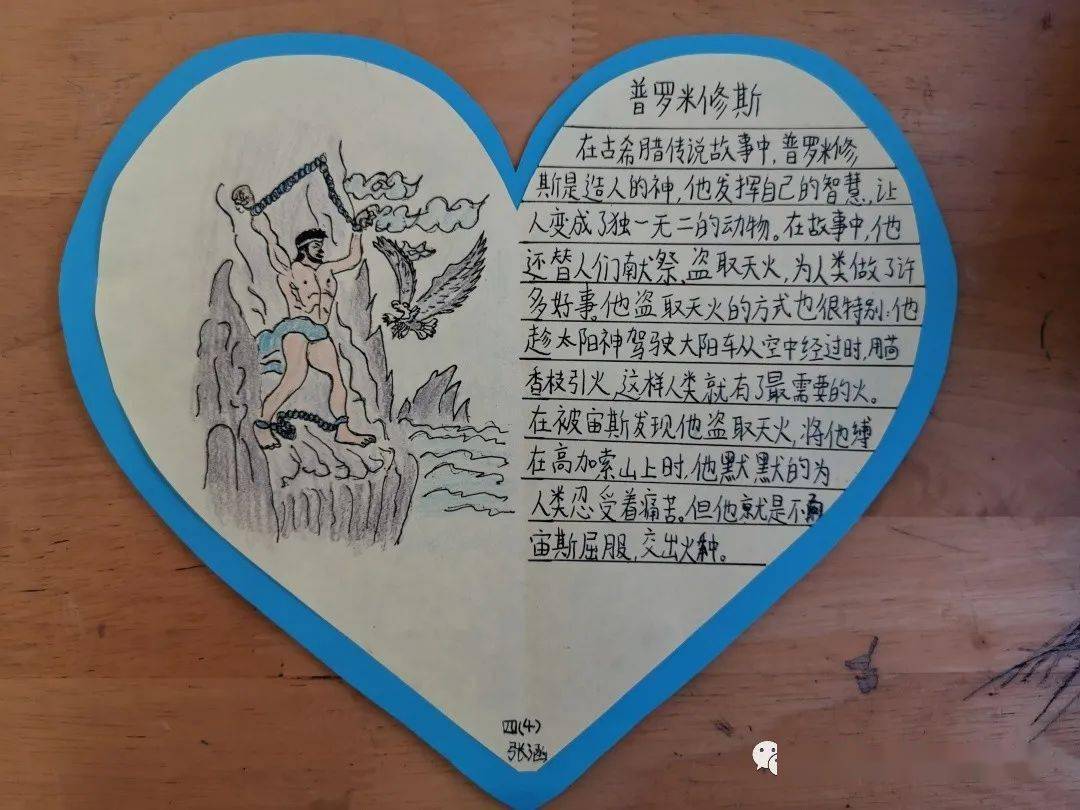 普罗米修斯
在古希腊传说故事中,普罗米修
斯是造人的神,他发挥自己的智慧,让
人变成了独一无二的动物。在故事中,他
还替人们献祭、盗取天火,为人类做了许
多好事。他盗取天火的方式也很特别:他
趁太阳神驾驶大阳车从空中经过时,用茴
香枝引火,这样人类就有了最需要的火。
在被宙斯发现他盗取天火,将他缚
在高加索山上时,他默默的为
人类忍受着痛苦。但他就是不向
宙斯屈服,交出火种。
四(4)
张涵